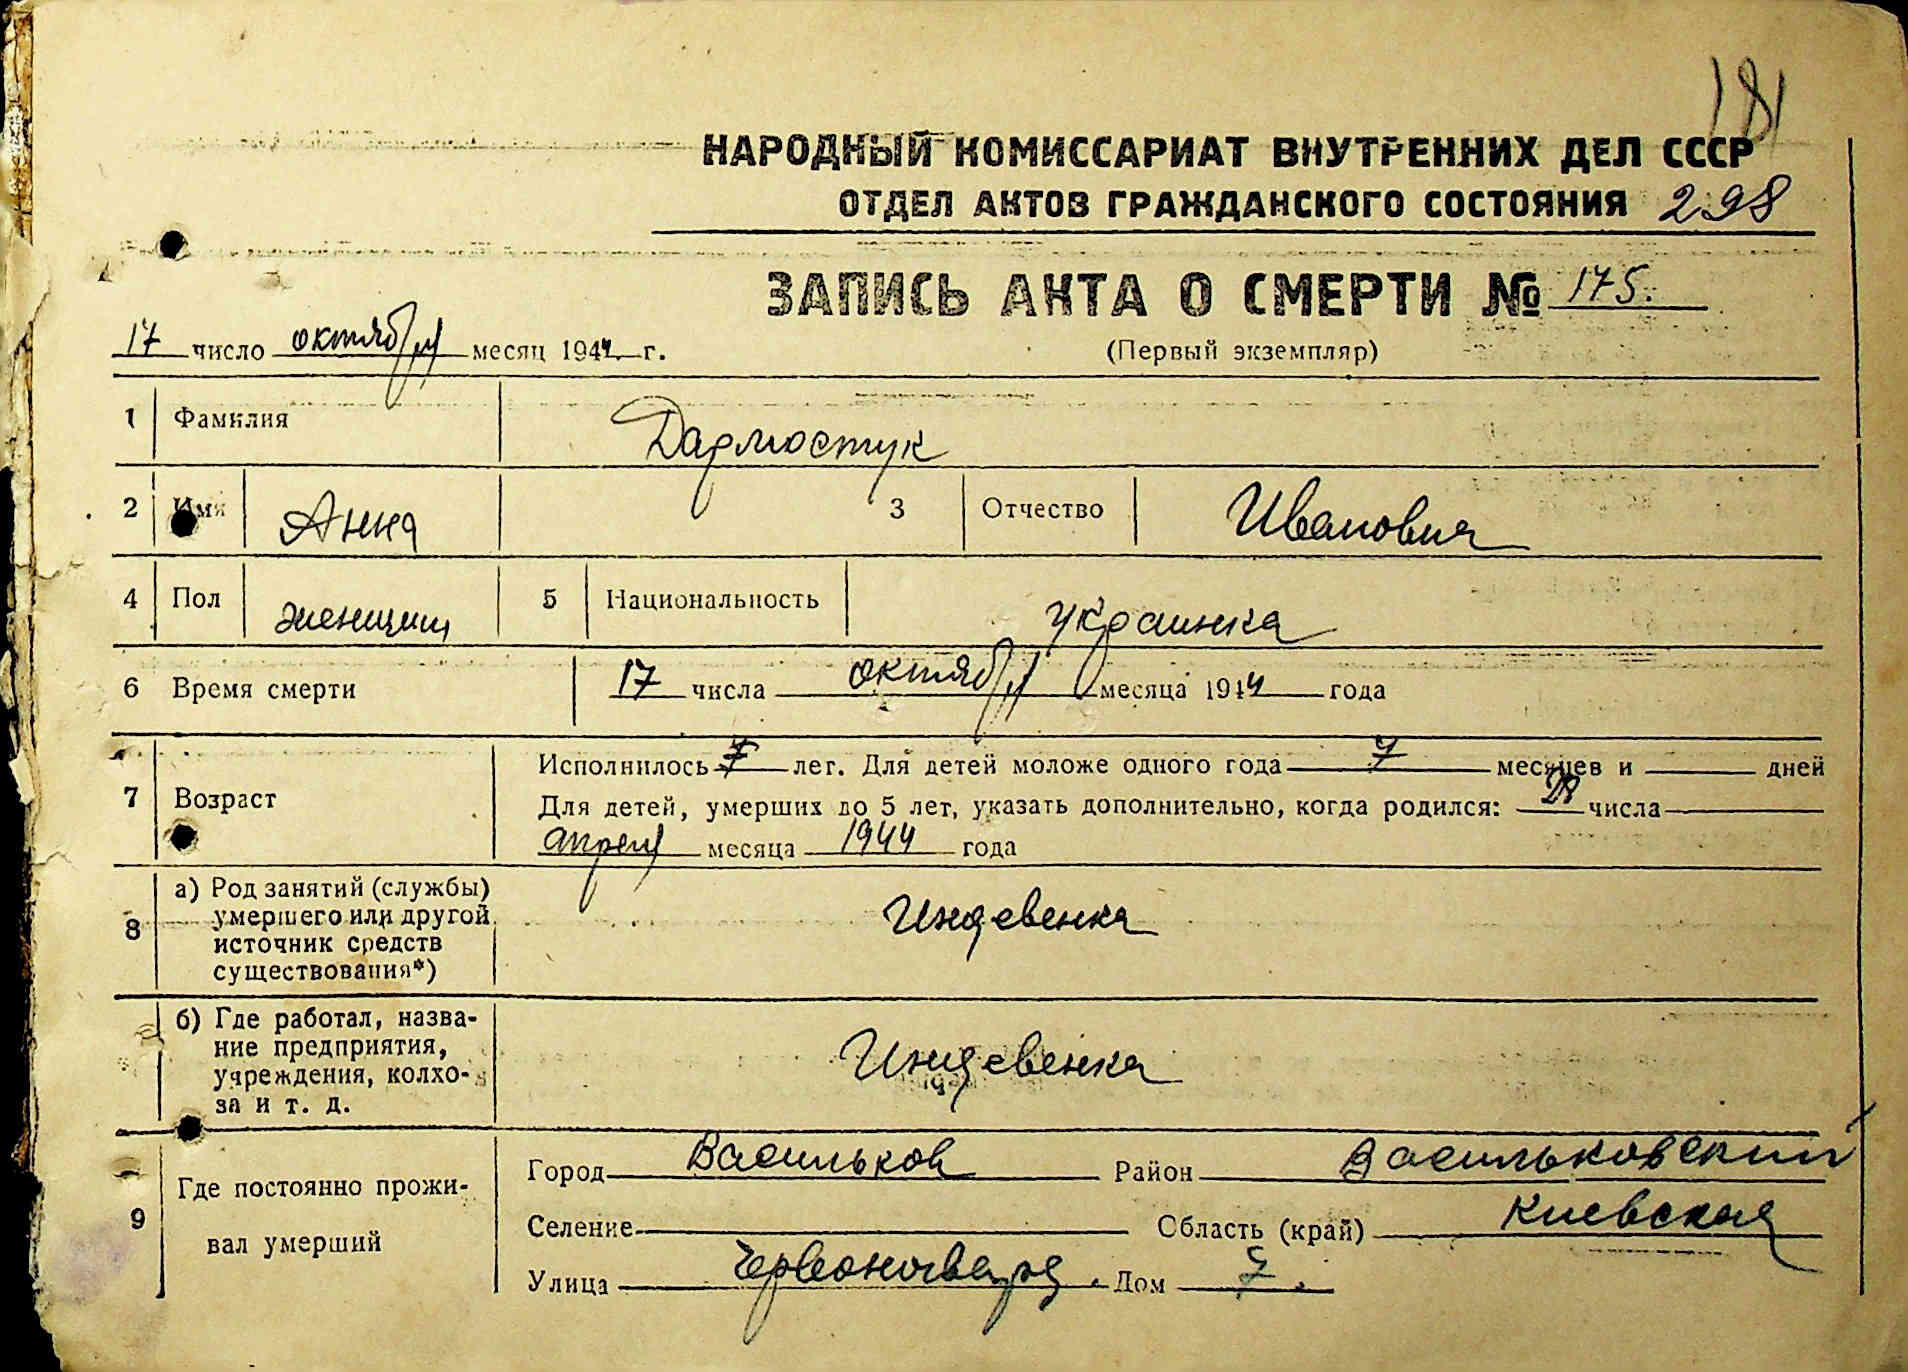 181
НАРОДНЫЙ КОМИССАРИАТ ВНУТРЕННИХ ДЕЛ СССР
ОТДЕЛ АКТОВ ГРАЖДАНСКОГО СОСТОЯНИЯ 298
ЗАПИСЬ АКТА О СМЕРТИ № 175.
17 число октября месяц 1944 г. (Первый экземпляр)
1 Фамилия Дармостук
2 Имя Анна 3 Отчество Ивановна
4 Пол женщин 5 Национальность украинка
6 Время смерти 17 числа октября месяца 1944 года
7 Возраст
Исполнилось 7 лет. Для детей моложе одного года 7 месяцев и дней
Для детей, умерших до 5 лет, указать дополнительно, когда родился: числа
апреля месяца 1944 года
8 а) Род занятий (службы)
умершего или другой
источник средств
существования*)
Индевенка
б) Где работал, назва-
ние предприятия,
учреждения, колхо-
за и т. д.
Индевенка
9 Где постоянно прожи-
вал умерший
Город Васильков Район Васильковский
Селение Область (край) Киевская
Улица Дом 7.